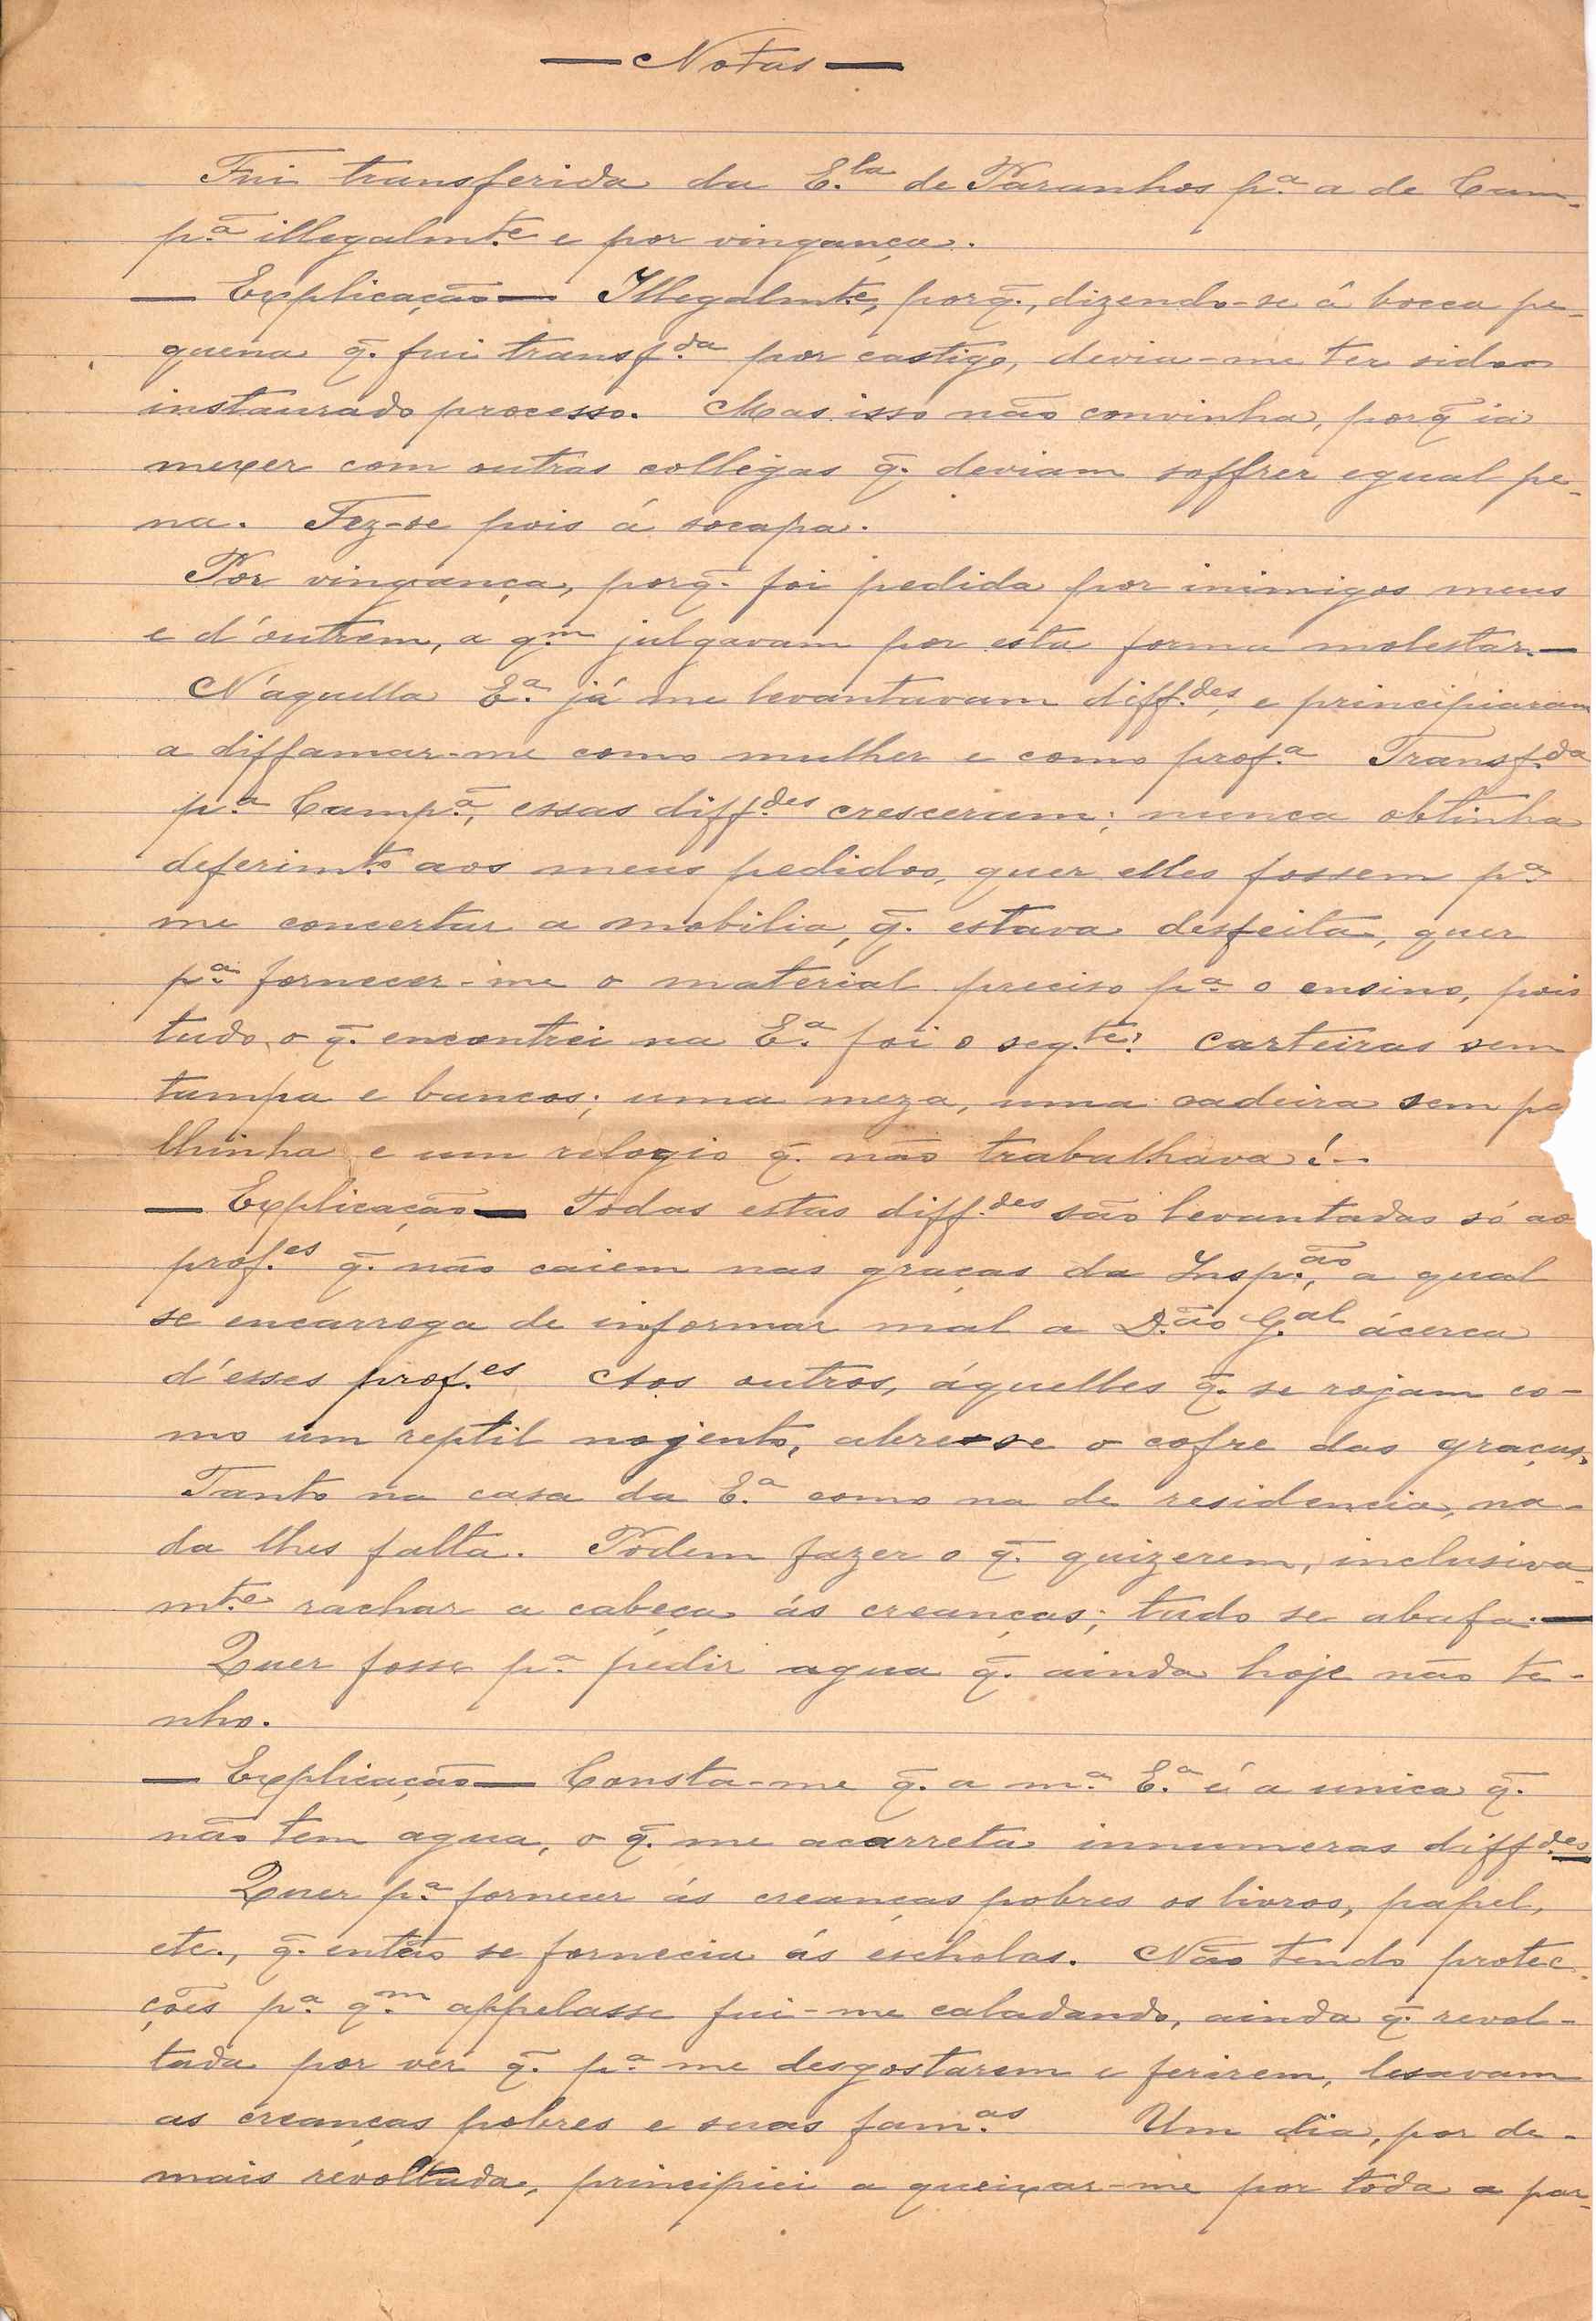 — Notas —
Fui transferida da E.la de Paranhos p.ª a de Cam-
p.ã illegalm.te e por vingança.
— Explicação — Illegalm.te, porq̃., dizendo-se á bocca pe-
quena q̃. fui transf.da por castigo, devia-me ter sido
instaurado processo. Mas isso não convinha, porq̃ ia
mexer com outras collegas q̃. deviam soffrer egual pe-
na. Fez-se pois á socapa.
Por vingança, porq̃. foi pedida por inimigos meus
e d'outrem, a q.m julgavam por esta forma molestar. —
N'aquella E.ª já me levantavam diff.des, e principiaram
a diffamar-me como mulher e como prof.ª Transf.da
p.ª Camp.ã, essas diff.des cresceram; nunca obtinha
deferim.to aos meus pedidos, quer elles fossem p.ª
me concertar a mobilia, q̃. estava desfeita, quer
p.ª fornecer-me o material preciso p.ª o ensino, pois
tudo o q̃. encontrei na E.ª foi o seg.te: carteiras sem
tampa e bancos; uma meza, uma cadeira sem pa
lhinha e um relogio q̃. não trabalhava!..
— Explicação — Todas estas diff.des são levantadas só ao
prof.es q̃. não caiem nas graças da Insp.ão, a qual
se encarrega de informar mal a D.ão G.al ácerca
d'esses prof.es Aos outros, áquelles q̃. se rojam co-
mo um reptil nojento, abre-se o cofre das graças.
Tanto na casa da E.ª como na de residencia, na-
da lhes falta. Podem fazer o q̃. quizerem, inclusiva-
m.te rachar a cabeça ás creanças; tudo se abafa. —
Quer fosse p.ª pedir agua q̃. ainda hoje não te-
nho.
— Explicação — Consta-me q̃. a m.ª E.ª é a unica q̃.
não tem agua, o q̃. me acarreta innumeras diff.des
Quer p.ª fornecer ás creanças pobres os livros, papel,
etc., q̃. então se fornecia ás escholas. Não tendo protec-
ções p.ª q.m appelasse fui-me caladando, ainda q̃. revol-
tada por vêr q̃. p.ª me desgostarem e ferirem, lesavam
as creanças pobres e suas fam.as Um dia, por de-
mais revoltada, principiei a queixar-me por toda a par-